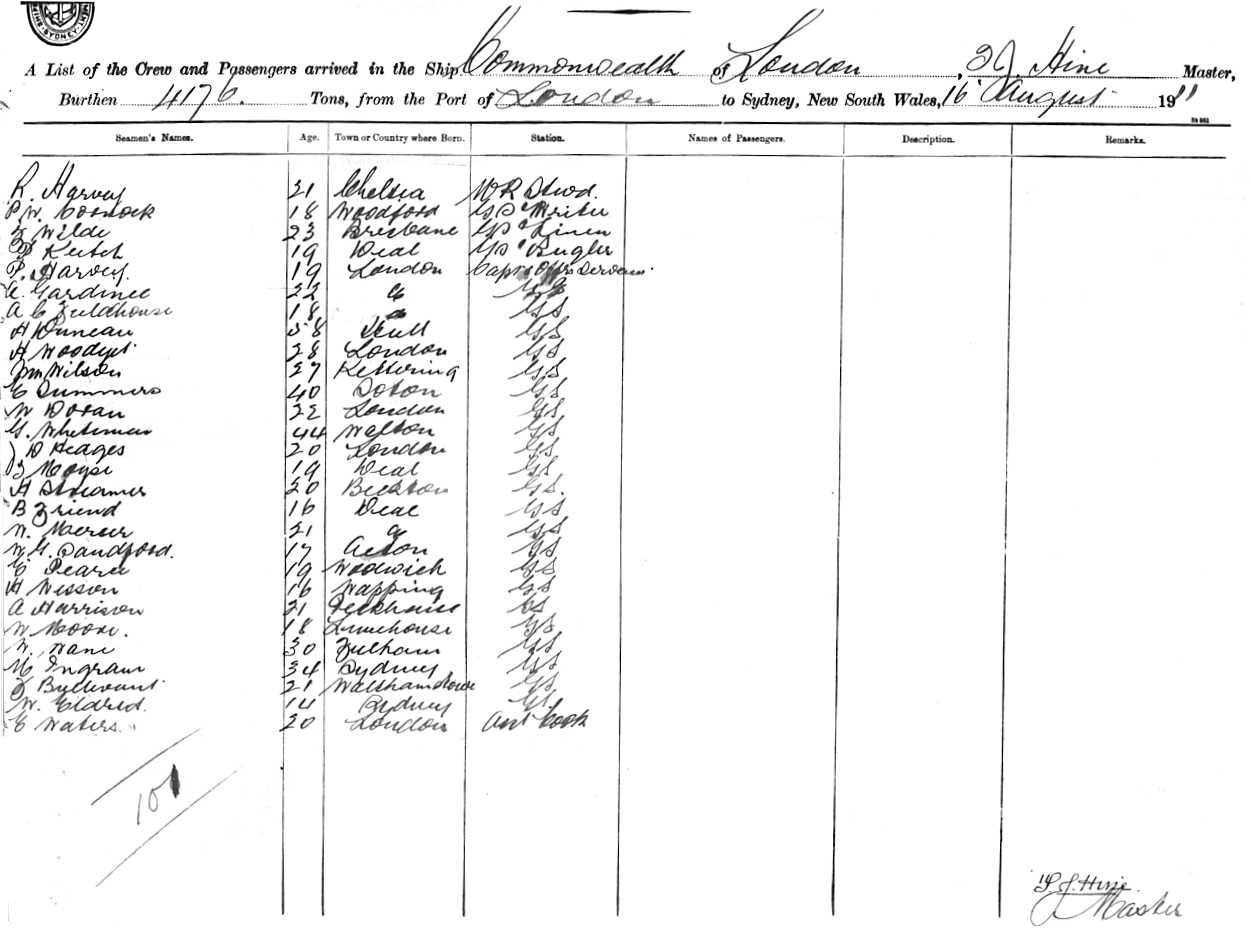 MENT. SHIPPING. SYDNEY.
A List of the Crew and Passengers arrived in the Ship Commonwealth of London, Hine Master,
Burthen 4176. Tons, from the Port of London to Sydney, New South Wales, 16 August 1911
Seamen's Names. Age. Town or Country where Born. Station. Names of Passengers. Description. Remarks.
R. Harvey 21 Chelsea Stwd.
P. W. Cornock 18 Woodford GS Writer
F Wilde 23 Brisbane GS Linen
Keitch 19 Deal GS Bugler
P. Harvey. 19 London Capts Offrs Servant
A. Gardiner 22
A C Fieldhouse 18 GS
H Duncan 58 Hull GS
H Woodget 28 London GS
Jm Wilson 27 Kettering GS
E Summers 40 Soton GS
W Doran 22 London GS
G. Whiteman 44 Walton GS
D Hedges 20 London GS
Moyse 19 Deal GS
H Streamer 20 Beckton GS.
B Friend 16 Deal GS
W. Mercer 21 GS
W. G. Sandford. 17 Acton GS
E Pearce 19 Woolwich GS
H Wesson 16 Wapping GS
A Harrison 21 GS
W Moore. 18 Limehouse GS
W. 30 Fulham GS
M Ingram 34 Sydney GS
F Bullivant 21 Walthamstow GS
W. Eldred. 14 Sydney GS
E Waters. 20 London Asst Cook
101
J. Hine.
Master